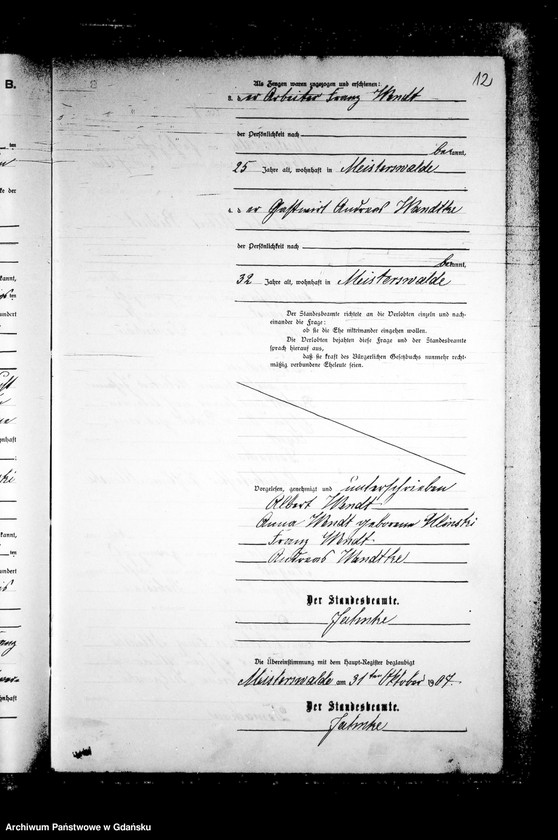 B.
12
Als Zeugen waren zugezogen und erschienen:
er Arbeiter Franz Wendt
der Persönlichkeit nach
bekannt,
25 Jahre alt, wohnhaft in Meisterswalde
4. der Gastwirt Andreas Wendtke
der Persönlichkeit nach
bekannt,
32 Jahre alt, wohnhaft in Meisterswalde
Der Standesbeamte richtete an die Verlobten einzeln und nach-
einander die Frage:
ob sie die Ehe miteinander eingehen wollen.
Die Verlobten bejahten diese Frage und der Standesbeamte
sprach hierauf aus,
daß sie kraft des Bürgerlichen Gesetzbuchs nunmehr recht-
mäßig verbundene Eheleute seien.
Vorgelesen, genehmigt und unterschrieben
Albert Wendt
Anna Wendt geborene Klinski
Franz Wendt
Andreas Wendtke
Der Standesbeamte.
Jahnke
Die Übereinstimmung mit dem Haupt-Register beglaubigt
Meisterswalde am 31ten Oktober 1907
Der Standesbeamte.
Jahnke
Archiwum Państwowe w Gdańsku